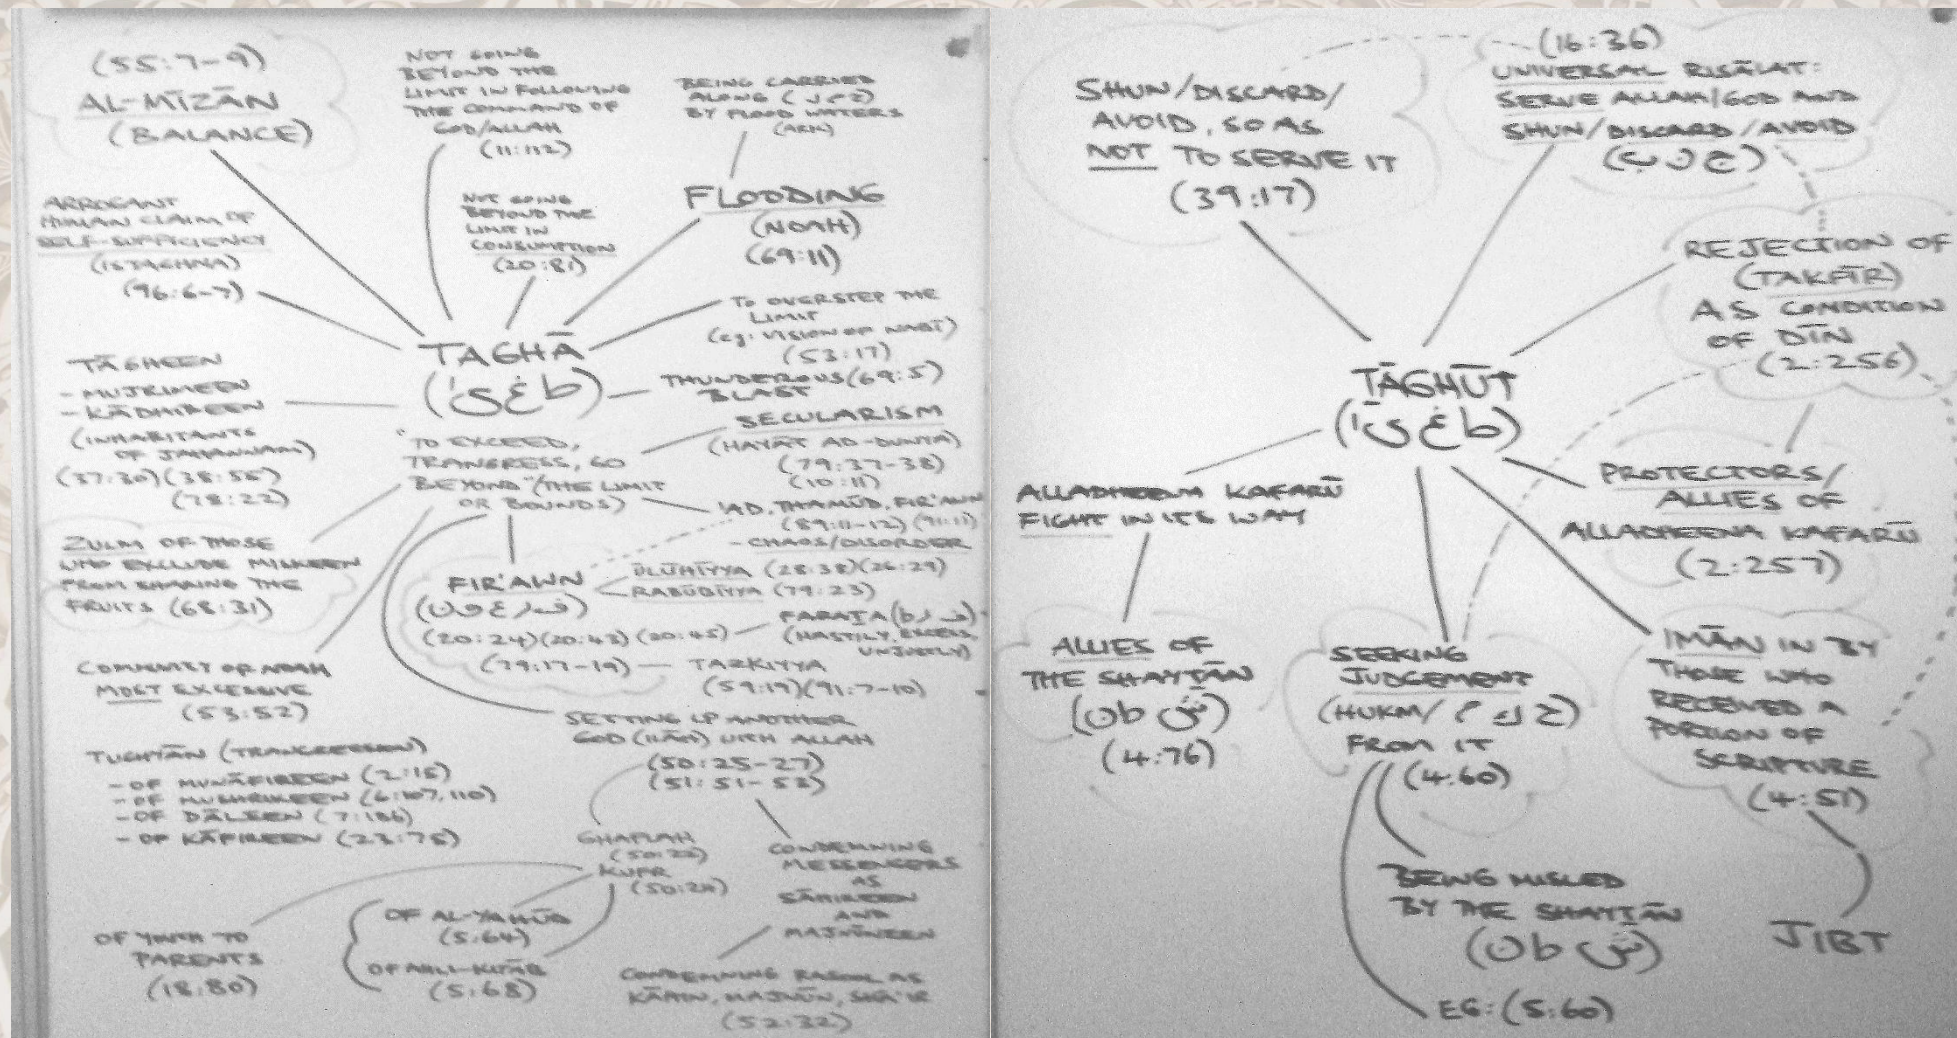 (55:7-9)
AL-MĪZĀN
(BALANCE)
NOT GOING
BEYOND THE
LIMIT IN FOLLOWING
THE COMMAND OF
GOD/ALLAH
(11:112)
BEING CARRIED
ALONG
BY FLOOD WATERS
(ARK)
FLOODING
(NOAH)
(69:11)
ARROGANT
HUMAN CLAIM OF
SELF-SUFFICIENCY
(ISTAGHNA)
(96:6-7)
NOT GOING
BEYOND THE
LIMIT IN
CONSUMPTION
(20:81)
TO OVERSTEP THE
LIMIT
(eg. VISION OF NABĪ)
(53:17)
TAGHĀ
(طغى)
THUNDEROUS (69:5)
BLAST
TĀGHEEN
- MUJRIMEEN
- KĀDHIBEEN
(INHABITANTS
OF JAHANNAM)
(37:30)(38:55)
(78:22)
"TO EXCEED,
TRANGRESS, GO
BEYOND" (THE LIMIT
OR BOUNDS)
SECULARISM
(HAYĀT AD-DUNYA)
(79:37-38)
(10:11)
'AD, THAMŪD, FIR'AWN
(89:11-12) (91:11)
- CHAOS/DISORDER
ZULM OF THOSE
WHO EXCLUDE MISKEEN
FROM SHARING THE
FRUITS (68:31)
FIR'AWN
(ف ر ع و ن)
ŪLŪHIYYA (28:38)(26:29)
RABŪBIYYA (79:23)
(20:24)(20:43)(20:45)
FARATA (ف ر ط)
(HASTILY, EXCESS,
UNJUSTLY)
(79:17-19) — TAZKIYYA
(59:19)(91:7-10)
COMMUNITY OF NOAH
MOST EXCESSIVE
(53:52)
SETTING UP ANOTHER
GOD (ILĀH) WITH ALLAH
(50:25-27)
(51:51-53)
TUGHYĀN (TRANGRESSION)
- OF MUNĀFIQEEN (2:15)
- OF MUSHRIKEEN (6:107,110)
- OF DĀLEEN (7:186)
- OF KĀFIREEN (23:75)
GHAFLAH
(50:22)
KUFR
(50:24)
CONDEMNING
MESSENGERS
AS
SĀHIREEN
AND
MAJNŪNEEN
OF YOUTH TO
PARENTS
(18:80)
OF AL-YAHŪD
(5:64)
OF AHLI-KITĀB
(5:68)
CONDEMNING RASOOL AS
KĀHIN, MAJNŪN, SHĀ'IR
(52:32)
SHUN/DISCARD/
AVOID, SO AS
NOT TO SERVE IT
(39:17)
(16:36)
UNIVERSAL RISĀLAT:
SERVE ALLAH/GOD AND
SHUN/DISCARD/AVOID
(ج ن ب)
REJECTION OF
(TAKFĪR)
AS CONDITION
OF DĪN
(2:256)
TĀGHŪT
(طغى)
ALLADHEENA KAFARŪ
FIGHT IN ITS WAY
PROTECTORS/
ALLIES OF
ALLADHEENA KAFARŪ
(2:257)
ALLIES OF
THE SHAYTĀN
(ش ط ن)
(4:76)
SEEKING
JUDGEMENT
(HUKM/ ح ك م)
FROM IT
(4:60)
IMĀN IN BY
THOSE WHO
RECEIVED A
PORTION OF
SCRIPTURE
(4:51)
BEING MISLED
BY THE SHAYTĀN
(ش ط ن)
JIBT
EG: (5:60)